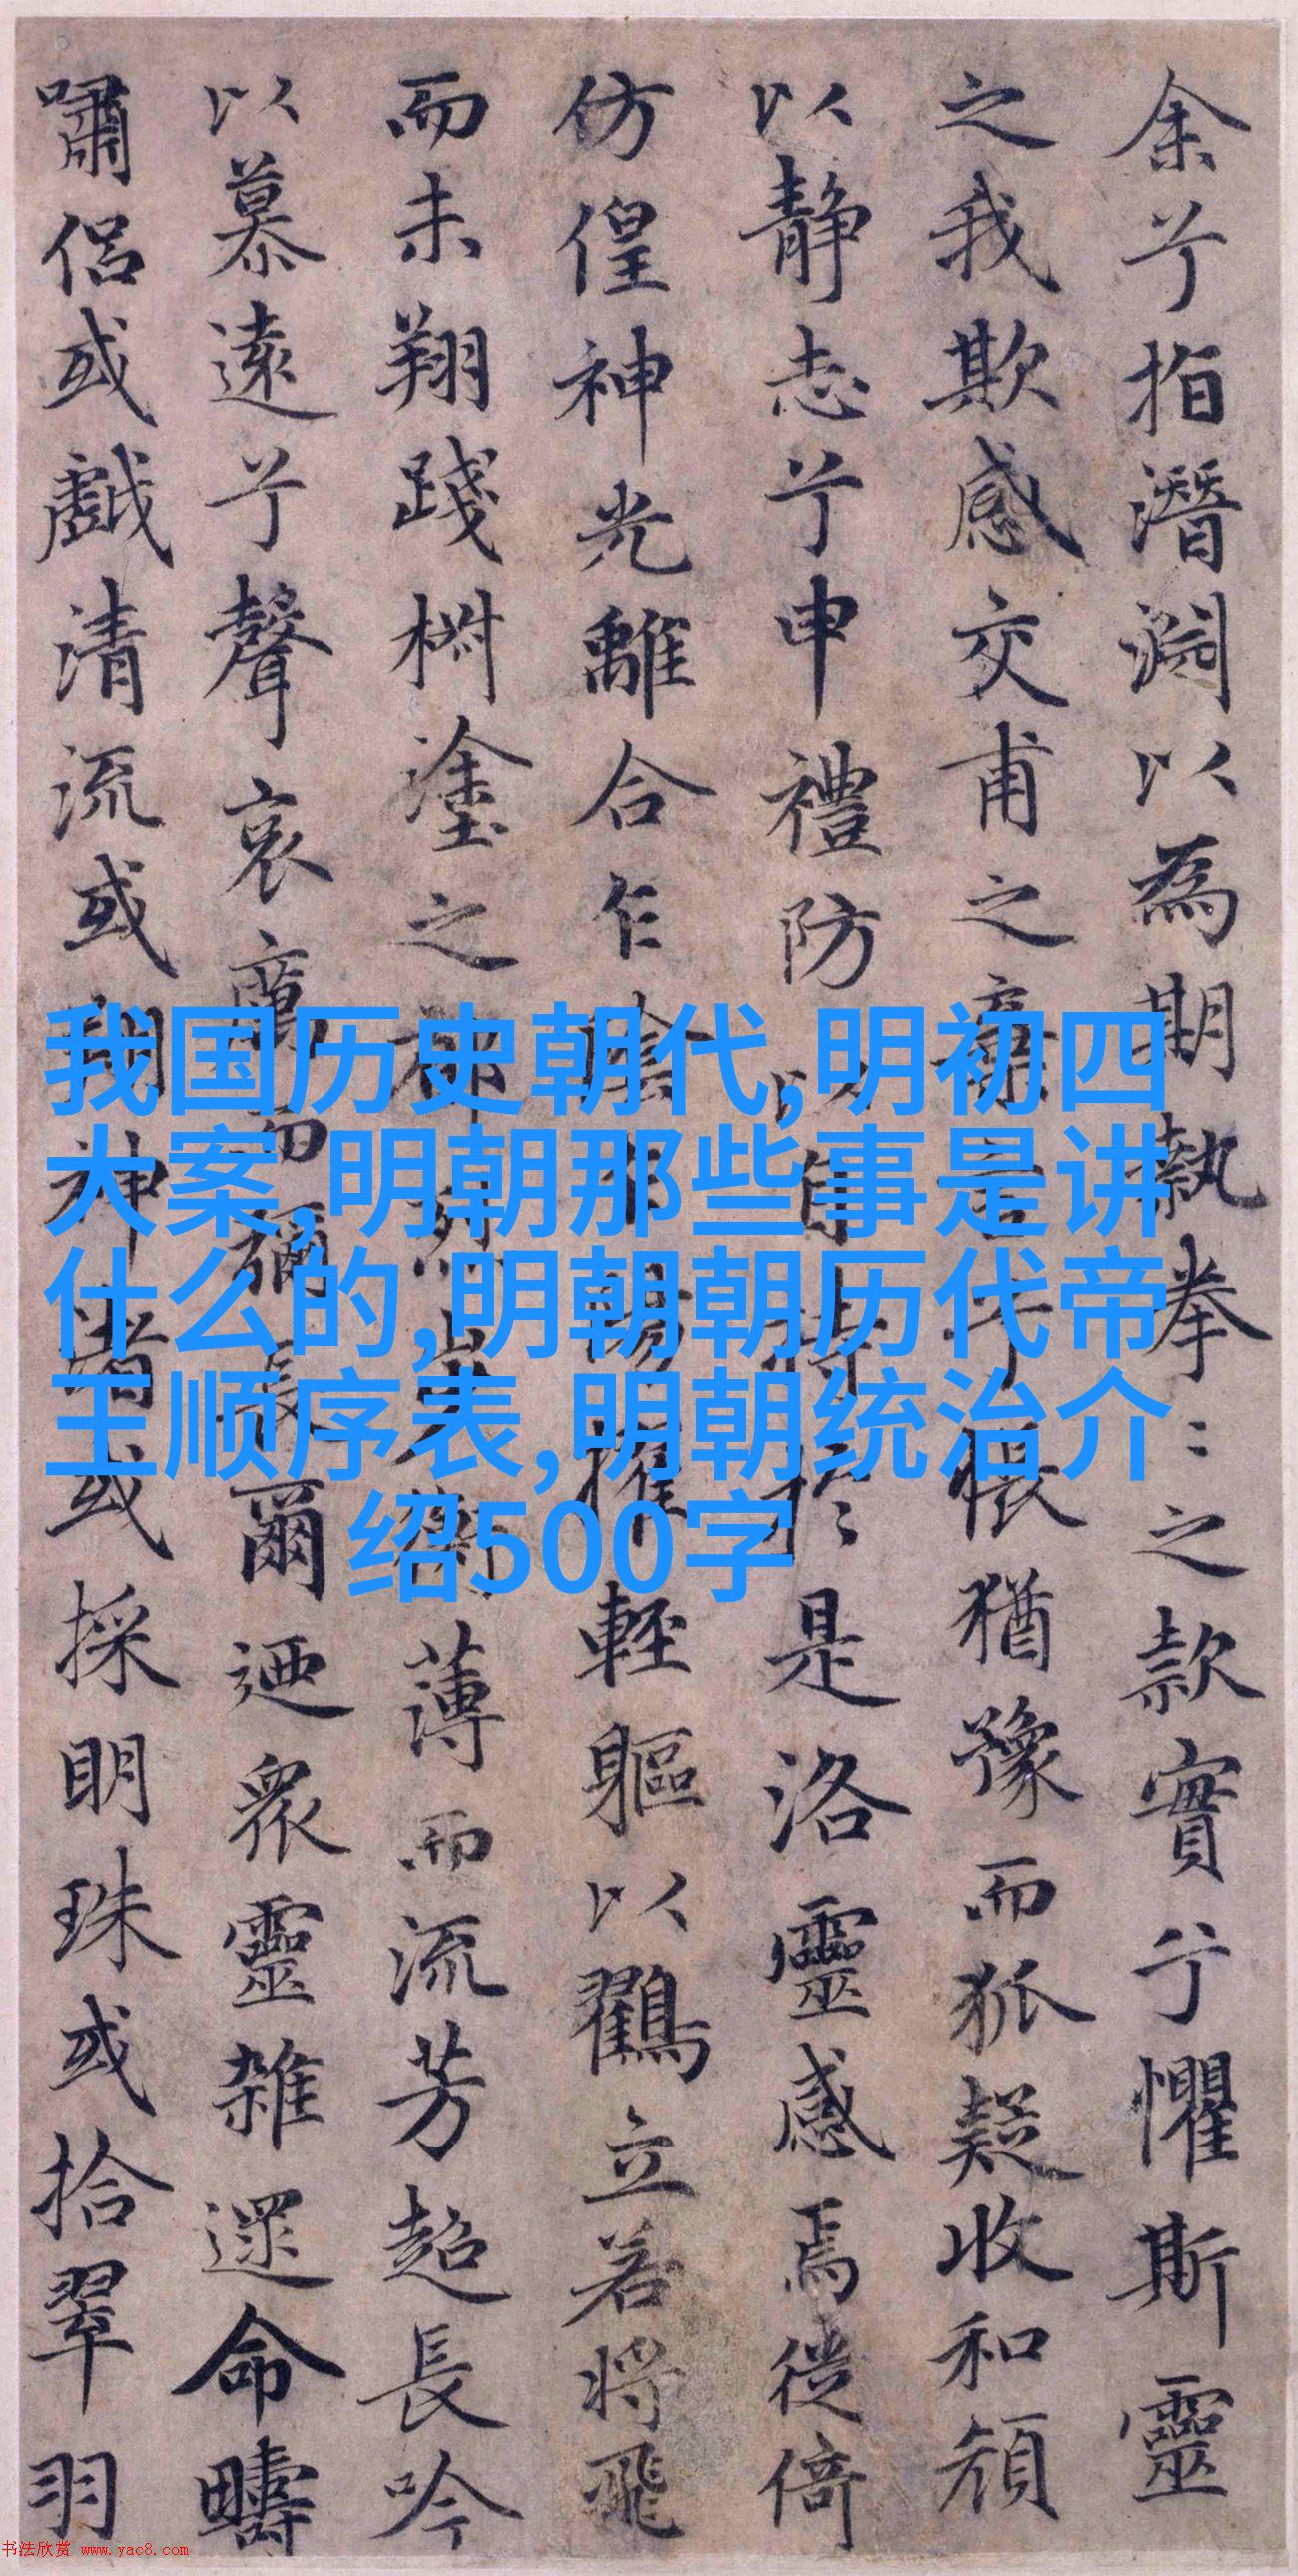 余兮指潛淵以為期執拳〻之款實兮懼斯靈
之我欺感交甫之棄言兮悵猶豫而狐疑收和顏
以靜志兮申禮防以自持於是洛靈感焉徙倚
仿偟神光離合乍陰乍陽擢輕軀以鶴立若將飛
而未翔踐椒塗之郁烈步蘅薄而流芳超長吟
以慕遠兮聲哀厲而彌長爾迺眾靈雜遝命疇
嘯侶或戲清流或翔神渚或採明珠或拾翠羽
我国历史朝代,明初四
大案,明朝那些事是讲
什么的,明朝朝历代帝
王顺序表,明朝统治介
绍500字
书法欣赏 www.yac8.com